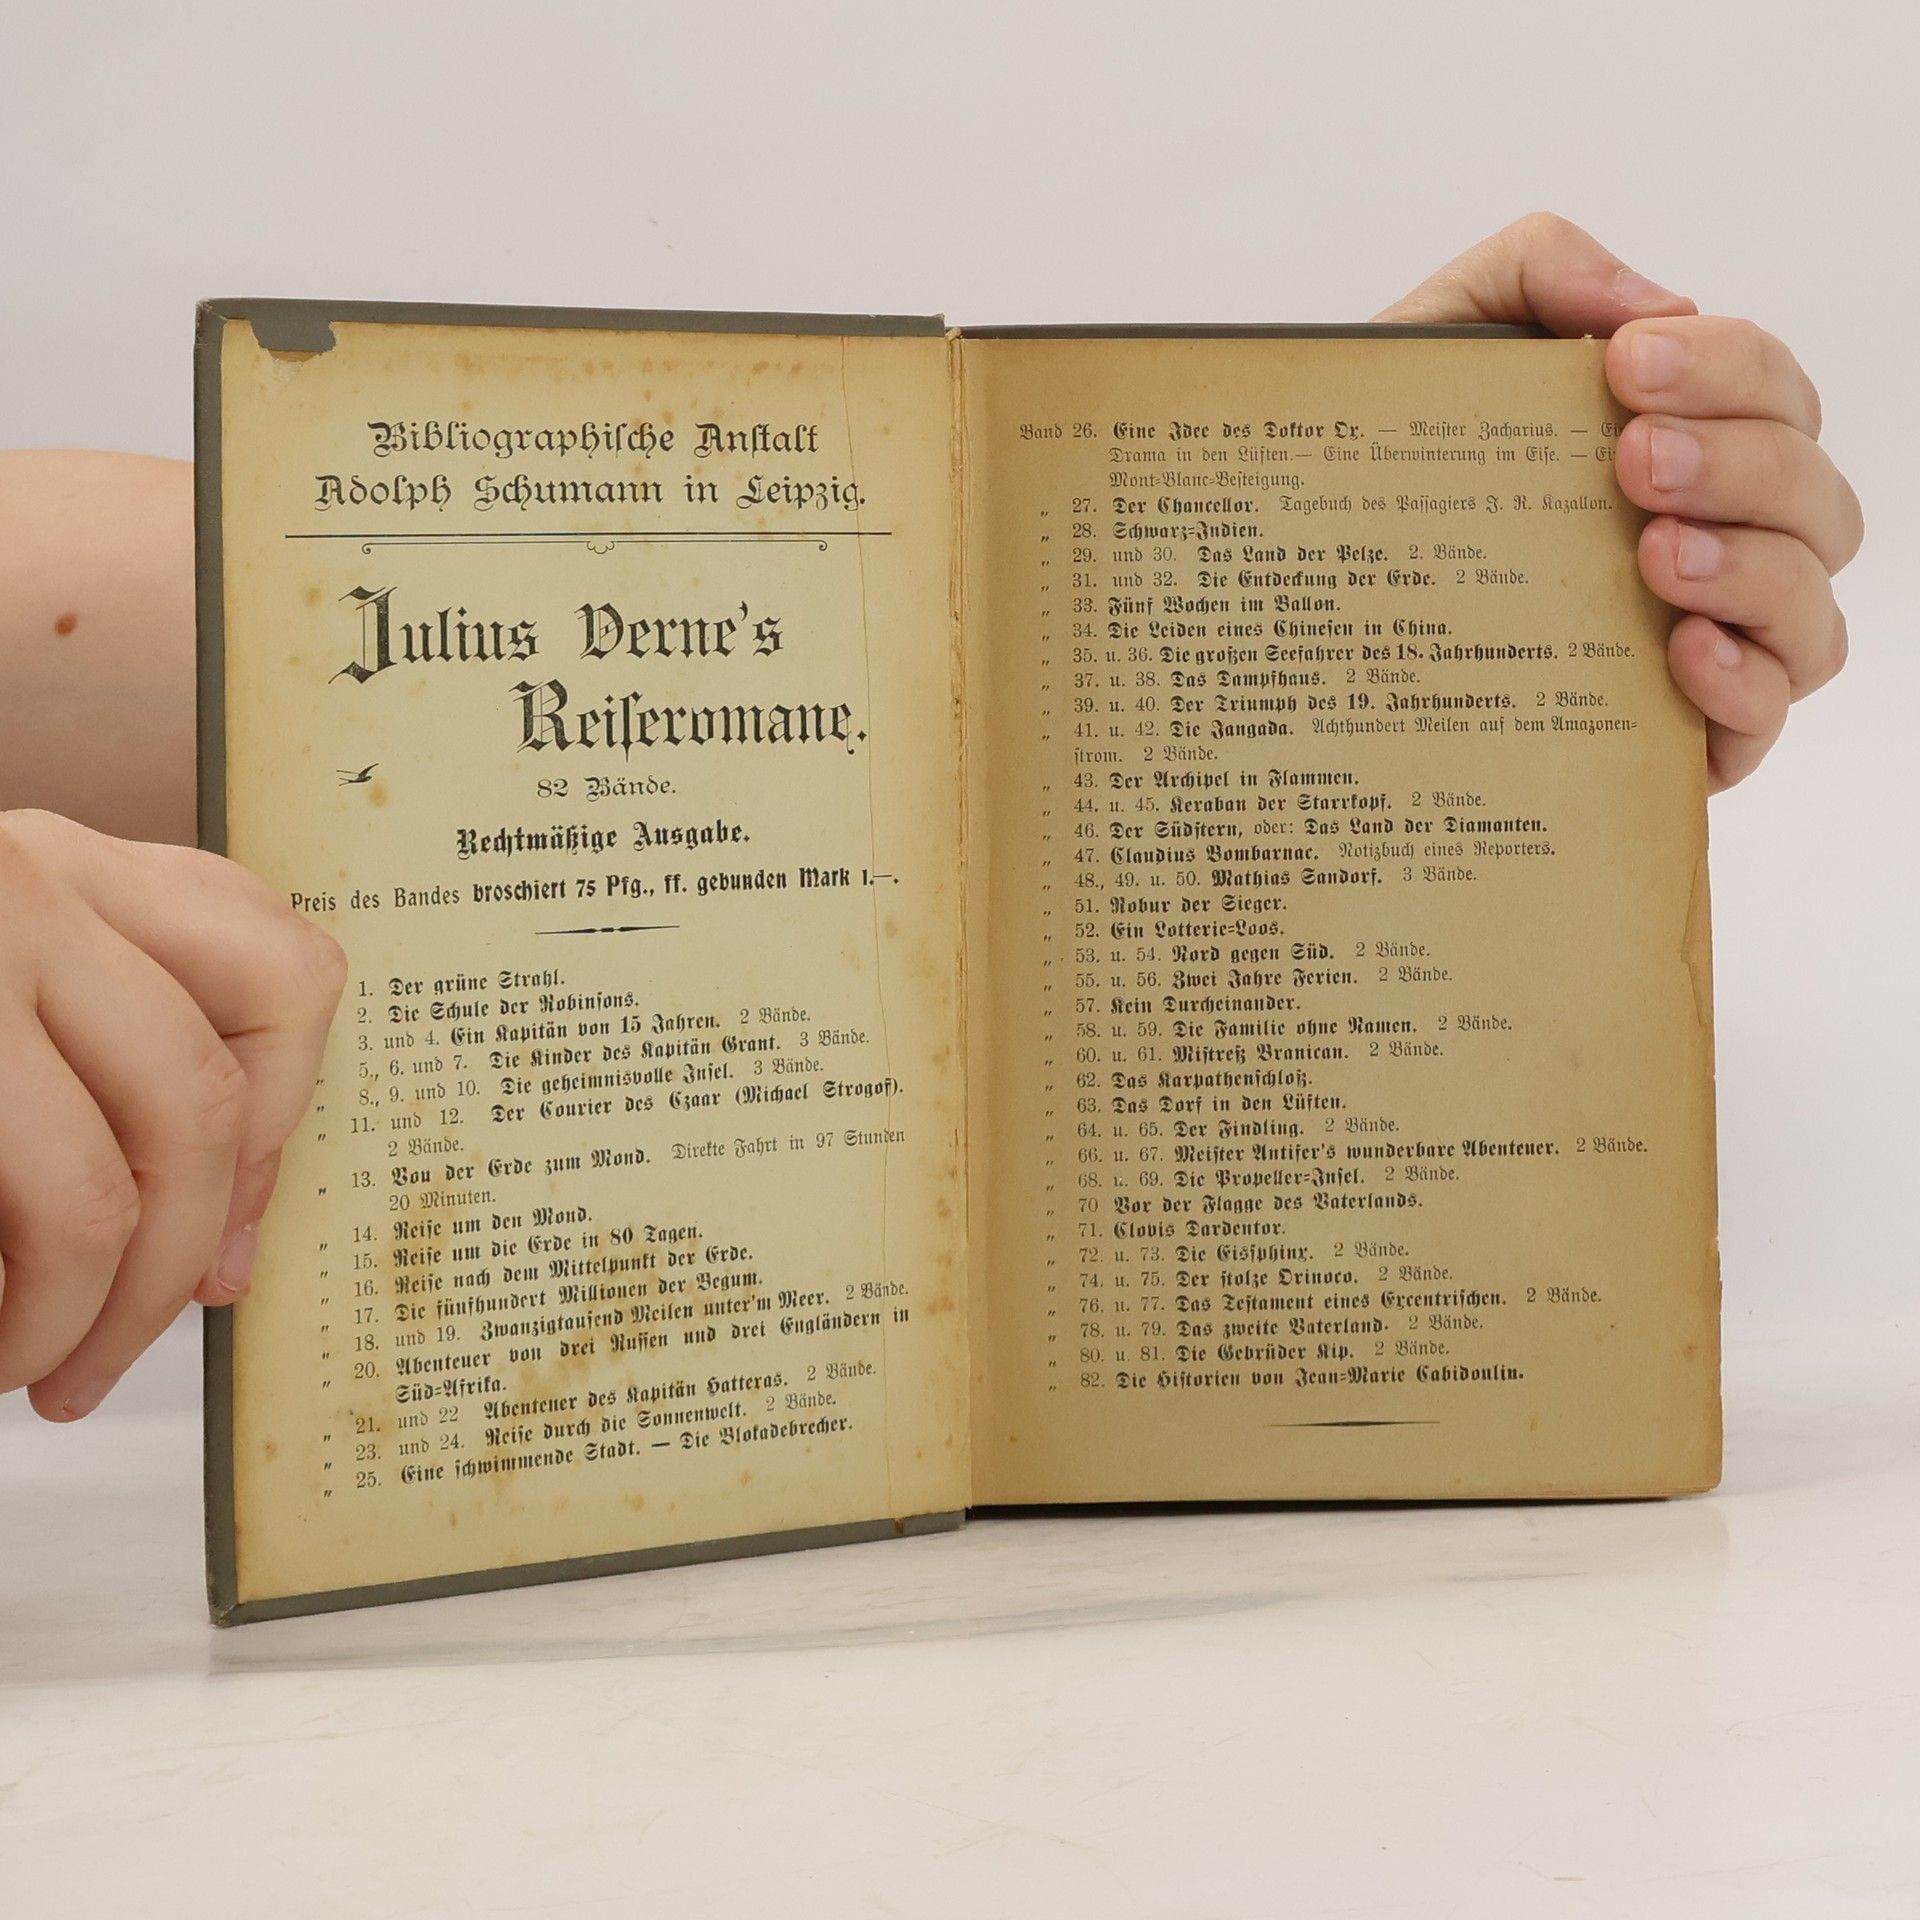 Bibliographiſche Anſtalt
Adolph Schumann in Leipzig.
Julius Verne's
Reiſeromane.
82 Bände.
Rechtmäßige Ausgabe.
Preis des Bandes broschiert 75 Pfg., ff. gebunden Mark 1.—.
1. Der grüne Strahl.
2. Die Schule der Robinſons.
3. und 4. Ein Kapitän von 15 Jahren. 2 Bände.
„ 5., 6. und 7. Die Kinder des Kapitän Grant. 3 Bände.
„ 8., 9. und 10. Die geheimnisvolle Inſel. 3 Bände.
„ 11. und 12. Der Courier des Czaar (Michael Strogof).
2 Bände.
„ 13. Von der Erde zum Mond. Direkte Fahrt in 97 Stunden
20 Minuten.
„ 14. Reiſe um den Mond.
„ 15. Reiſe um die Erde in 80 Tagen.
„ 16. Reiſe nach dem Mittelpunkt der Erde.
„ 17. Die fünfhundert Millionen der Begum.
„ 18. und 19. Zwanzigtauſend Meilen unter'm Meer. 2 Bände.
„ 20. Abenteuer von drei Ruſſen und drei Engländern in
Süd-Afrika.
„ 21. und 22 Abenteuer des Kapitän Hatteras. 2 Bände.
„ 23. und 24. Reiſe durch die Sonnenwelt. 2 Bände.
„ 25. Eine ſchwimmende Stadt. — Die Blokadebrecher.
Band 26. Eine Idee des Doktor Ox. — Meiſter Zacharius. —
Drama in den Lüften.— Eine Überwinterung im Eiſe. —
Mont-Blanc-Beſteigung.
„ 27. Der Chancellor. Tagebuch des Paſſagiers J. R. Kazallon.
„ 28. Schwarz-Indien.
„ 29. und 30. Das Land der Pelze. 2. Bände.
„ 31. und 32. Die Entdeckung der Erde. 2 Bände.
„ 33. Fünf Wochen im Ballon.
„ 34. Die Leiden eines Chineſen in China.
„ 35. u. 36. Die großen Seefahrer des 18. Jahrhunderts. 2 Bände.
„ 37. u. 38. Das Dampfhaus. 2 Bände.
„ 39. u. 40. Der Triumph des 19. Jahrhunderts. 2 Bände.
„ 41. u. 42. Die Jangada. Achthundert Meilen auf dem Amazonen-
ſtrom. 2 Bände.
„ 43. Der Archipel in Flammen.
„ 44. u. 45. Keraban der Starrkopf. 2 Bände.
„ 46. Der Südſtern, oder: Das Land der Diamanten.
„ 47. Claudius Bombarnac. Notizbuch eines Reporters.
„ 48., 49. u. 50. Mathias Sandorf. 3 Bände.
„ 51. Robur der Sieger.
„ 52. Ein Lotterie-Loos.
„ 53. u. 54. Nord gegen Süd. 2 Bände.
„ 55. u. 56. Zwei Jahre Ferien. 2 Bände.
„ 57. Kein Durcheinander.
„ 58. u. 59. Die Familie ohne Namen. 2 Bände.
„ 60. u. 61. Miſtreß Branican. 2 Bände.
„ 62. Das Karpathenſchloß.
„ 63. Das Dorf in den Lüften.
„ 64. u. 65. Der Findling. 2 Bände.
„ 66. u. 67. Meiſter Antifer's wunderbare Abenteuer. 2 Bände.
„ 68. u. 69. Die Propeller-Inſel. 2 Bände.
„ 70 Vor der Flagge des Vaterlands.
„ 71. Clovis Dardentor.
„ 72. u. 73. Die Eisſphinx. 2 Bände.
„ 74. u. 75. Der ſtolze Orinoco. 2 Bände.
„ 76. u. 77. Das Teſtament eines Excentriſchen. 2 Bände.
„ 78. u. 79. Das zweite Vaterland. 2 Bände.
„ 80. u. 81. Die Gebrüder Kip. 2 Bände.
„ 82. Die Hiſtorien von Jean-Marie Cabidoulin.